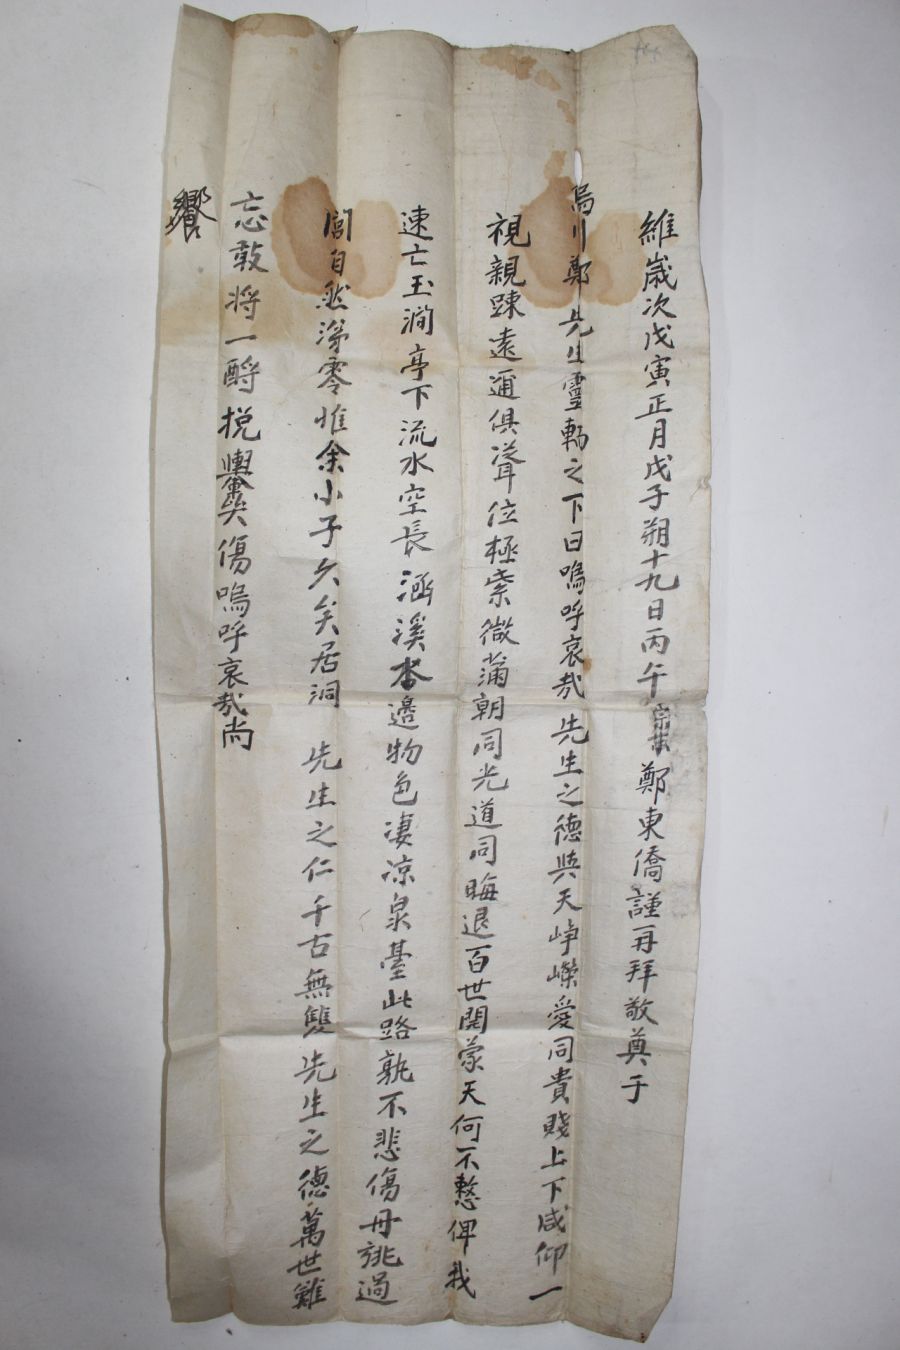 維歲次戊寅正月戊子朔十九日丙午鄭東僑謹再拜敬奠于
烏川鄭先生靈輀之下曰嗚呼哀哉先生之德與天崢嶸愛同貴賤上下咸仰一
視親踈遠邇俱聳位極紫微蒲朝同光道同晦退百世開蒙天何不憖俾我
速亡玉澗亭下流水空長涵溪書邊物色凄凉泉臺此路孰不悲傷丹旐過
閭自然涕零惟余小子久矣居洞 先生之仁千古無雙先生之德萬世難
忘敢將一酹挽輿奠傷嗚呼哀哉尚
饗